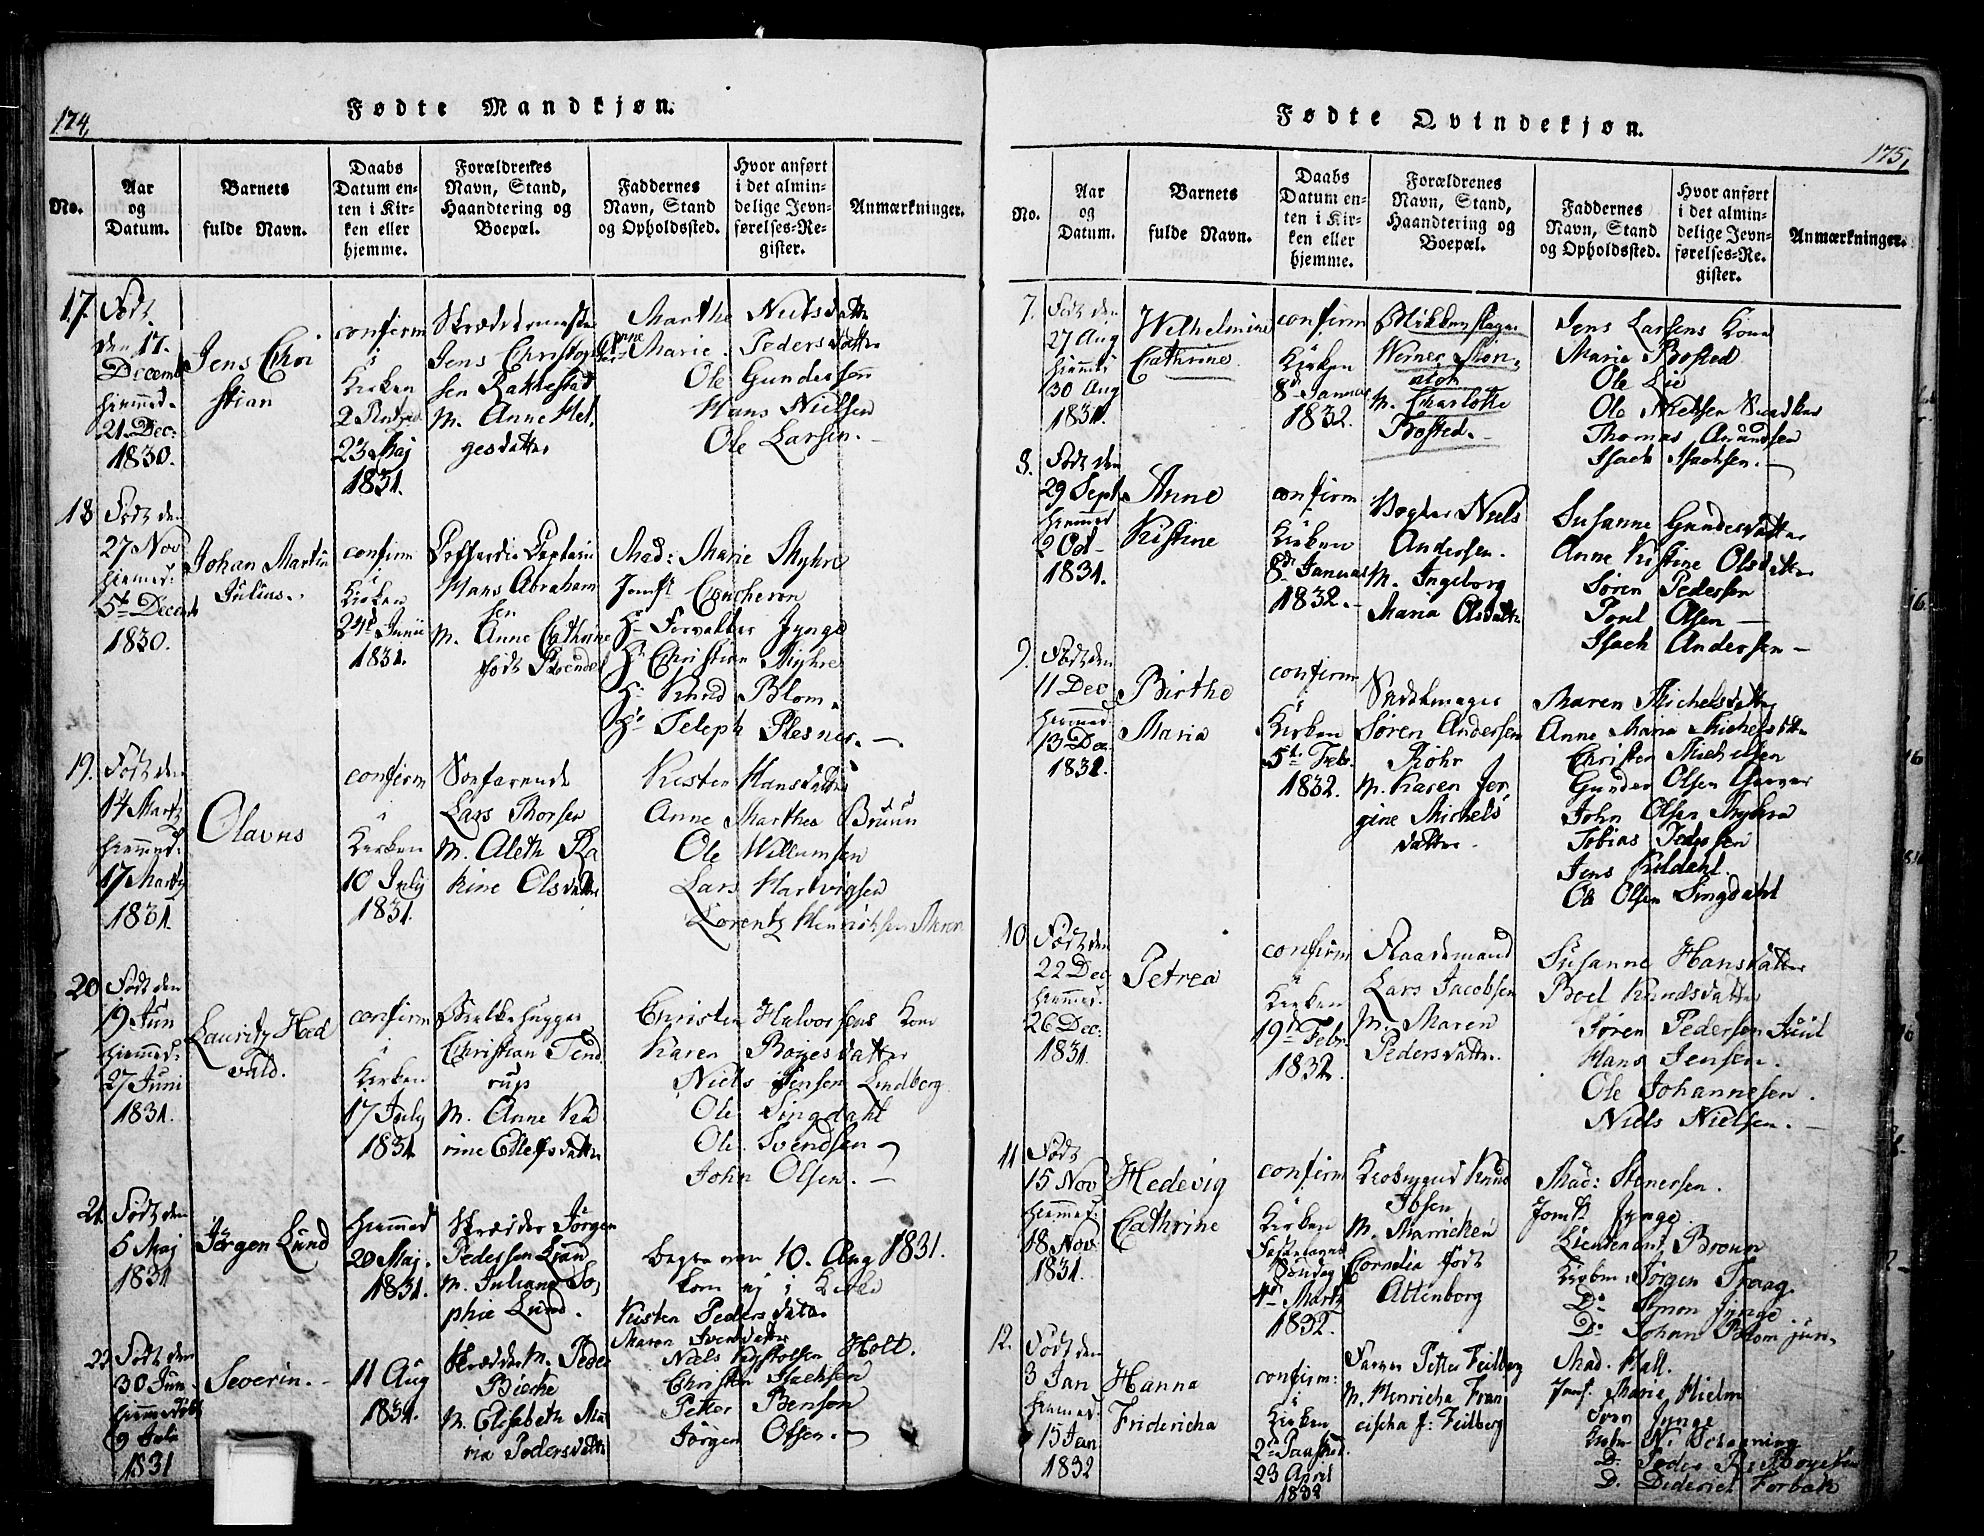 174,
Fødte Mandkjøn.
No.
Aar
og
Datum.
Barnets
fulde Navn.
Daabs
Datum en-
ten i Kir-
ken eller
hjemme.
Forældrenes
Navn, Stand,
Haandtering og
Boepæl.
Faddernes
Navn, Stand
og Opholdssted.
Hvor anført
i det almin-
delige Jevn-
førelses-Re-
gister.
Anmærkninger.
17.
Født
den 17.
Decemb
hiemmed.
21 Dec:
1830.
Jens Chri
stian
confirm
i
Kirken
23 Maj
1831.
Jens Christop
sen Rakkestad
M. Anne Hel
gesdatter
Marthe Nielsdatter
Anne Marie Pedersdatter
Ole Gundersen
Hans Nielsen
Ole Larsen.
18
Født den
27 Nov
hiemmed:
5t Decemb
1830.
Johan Martin
Julius.
confirm
i
Kirken
24d Junii
1831.
Coffardie Captain
Hans Abraham
sen
M. Anne Cathrine
født
Mad: Marie Myhre
Jomf Concheron
Hr Forvalter Jynge
Hr Christian Myhre
Hr Knud Blom
Hr Teleph Plesner.
19.
Født den
14 Marty
hiemmed:
17 Marty
1831.
Olavus
confirm
i
Kirken
10 July
1831.
Søefarende
Lars Thorsen
M. Aleth Ka
rine Olsdatter
Kisten Hansdatter
Anne Marthea Bruun
Ole Willumsen
Lars Hartvigsen
Lorentz Henrichsen
20
Født den
19 Jun
hiemmed:
27 Juni
1831.
Lauritz Hed
vald.
confirm
i
Kirken
17 July
1831
Bielkehugger
Christian Tend
rup
M. Anne Ka
rine Ellefsdatter
Christen Halvorsens Kone
Karen Boyesdatter
Niels Jensen Lindberg
Ole Singdahl
Ole Svendsen
John Olsen.
21.
Født den
5 Maj
1831
Jørgen Lund
hiemmed
20 Maj.
1831.
Skrædder Jørgen
Pedersen Lund
M. Juliane So
phie Lund.
10. Aug 1831.
kom ej i Kirke
Kisten Pedersdatter
22
Født den
30 Jun
hiemmedøbt
9 Juli
1831
Severin.
11 Aug
1831.
Skrædder M. Peder
Bierke
M. Elisabeth Ma
ria Pedersdatter
Maren Svensdatter
Niels Holt.
Christen Isachsen
Petter Benson
Jørgen Olsen.
175,
Fødte Qvindekjøn.
No.
Aar
og
Datum.
Barnets
fulde Navn.
Daabs
Datum en-
ten i Kir-
ken eller
hjemme.
Forældrenes
Navn, Stand,
Haandtering og
Boepæl.
Faddernes
Navn, Stand
og Opholdssted.
Hvor anført
i det almin-
delige Jevn-
førelses-Re-
gister.
Anmærkninger.
7.
Født den
27 Aug
hiemmed
30 Aug
1831.
Wilhelmine
Cathrine
confirm
i
Kirken
8de Januar
1832.
Blikkenslager
Werner
M. Charlotte
Brosted.
Jens Larsens Kone
Maria Brosted
Ole Lie
Ole Nielsen
Thomas Amundsen
Isach Isachsen.
8.
Født den
29 Septb
hiemmed
2 Oct
1831.
Anne
Kistine
confirm
i
Kirken
8de Januar
1832.
Vogter Niels
Andersen.
M. Ingeborg
Maria Olsdatter
Susanne Gundersdatter
Anne Kistine Olsdatter
Søren Pedersen
Poul Olsen
Isach Andersen
9.
Født den
11 Dec
hiemmed.
13 Dec
1831.
Birthe
Maria
confirm
i
Kirken
5t Febr
1832.
Søren Andersen
Rohr
M. Karen Jør
gine Michels
datter.
Maren Michelsdatter
Anne Maria Michelsdatter
Christen Michelsen
Gunder Olsen Garver
John Olsen Myhra
Tobias Pedersen
Jens Kildahl
Ole Olsen Singdahl
10
Født den
22 Dec
hiemmed.
26 Dec:
1831.
Petrea
confirm
i
Kirken
19de Febr
1832.
Lars Jacobsen
M. Maren
Pedersdatter.
Susanne Hansdatter
Boel Knudsdatter
Søren Pedersen Juul
Hans Jensen.
Ole Johannesen.
Niels Nielsen.
11
Født
15 Nov
hiemmed:
18 Nov
1831.
Hedevig
Cathrine
confirm
i
Kirken
Fastelavns
Søndag
4de Marts
1832.
Knud
Ibsen
M. Marrichen
Cornelia født
Altenborg
Mad: Stenersen.
Jomf. Jynge
Lieutenant Brown
Kiøbm: Jørgen Fraag.
Do Symon Jynge
Do Johan Blom jun.
12.
Født den
3 Jan
hiemmed.
15 Jan
1832
Hanna
Fridericha
confirm:
i
Kirken
23 April
1832
Farver Petter Feilberg
M. Henricha Fran
cischa f: Feilberg
Mad. Hall.
Jomf. Maria Hielm
Sven Jynge
D. Dederich Forbech